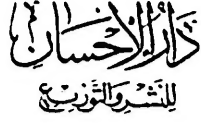 دَارُ الإِحْسَانِ
لِلنَّشْرِ وَالتَّوْزِيعِ